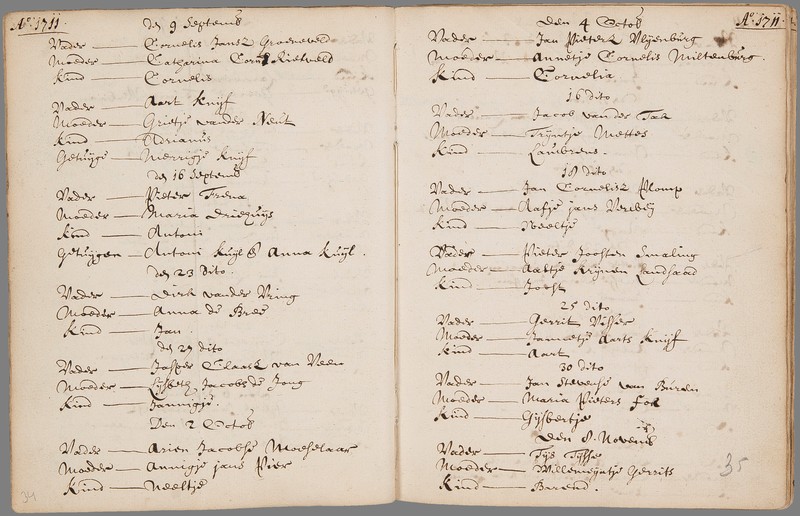 Ao. 1711.
den 9 Septemb
Vader — Cornelis Jansz Groeneveld
Moeder — Catharina Corn Rietveld
Kind — Cornelis
Vader — Aart Knijf
Moeder — Grietje vander Neut
Kind — Adrianus
Getuijge — Merrigje Knijf
den 16 Septemb
Vader — Pieter Frena
Moeder — Maria Driequijs
Kind — Antoni
Getuijgen — Antoni Kuijl & Anna Kuijl.
den 23 Dito.
Vader — Dirk vander Vring
Moeder — Anna de Bree
Kind — Jan.
den 27 dito
Vader — Jasper Claasz van Veen
Moeder — Lijsbeth Jacobs de Jong
Kind — Jannigje.
Den 2 Octob
Vader — Arien Jacobse Moeselaar
Moeder — Annigje jans Pier
Kind — Neeltje
34
Ao. 1711.
Den 4 Octob
Vader — Jan Pieterz Uljenburg
Moeder — Annetje Cornelis Miltenburg.
Kind — Cornelia
16 dito
Vader — Jacob vander Tak
Moeder — Trijntje Mettes
Kind — Lambrens.
18 dito
Vader — Jan Cornelisz Plomp
Moeder — Aafje jans Verbeij
Kind — Neeltje
Vader — Pieter Joosten Smaling
Moeder — Aaltje Krijnen Landsaad
Kind — Joost
25 dito
Vader — Gerrit Visser
Moeder — Jannetje Aarts Knijf
Kind — Aart
30 dito
Vader — Jan Stevense van Buren
Moeder — Maria Pieters Fok
Kind — Gijsbertje
Den 8. Novemb
Vader — Tijs Tijsse
Moeder — Willemijntje Gerrits
Kind — Barend.
35